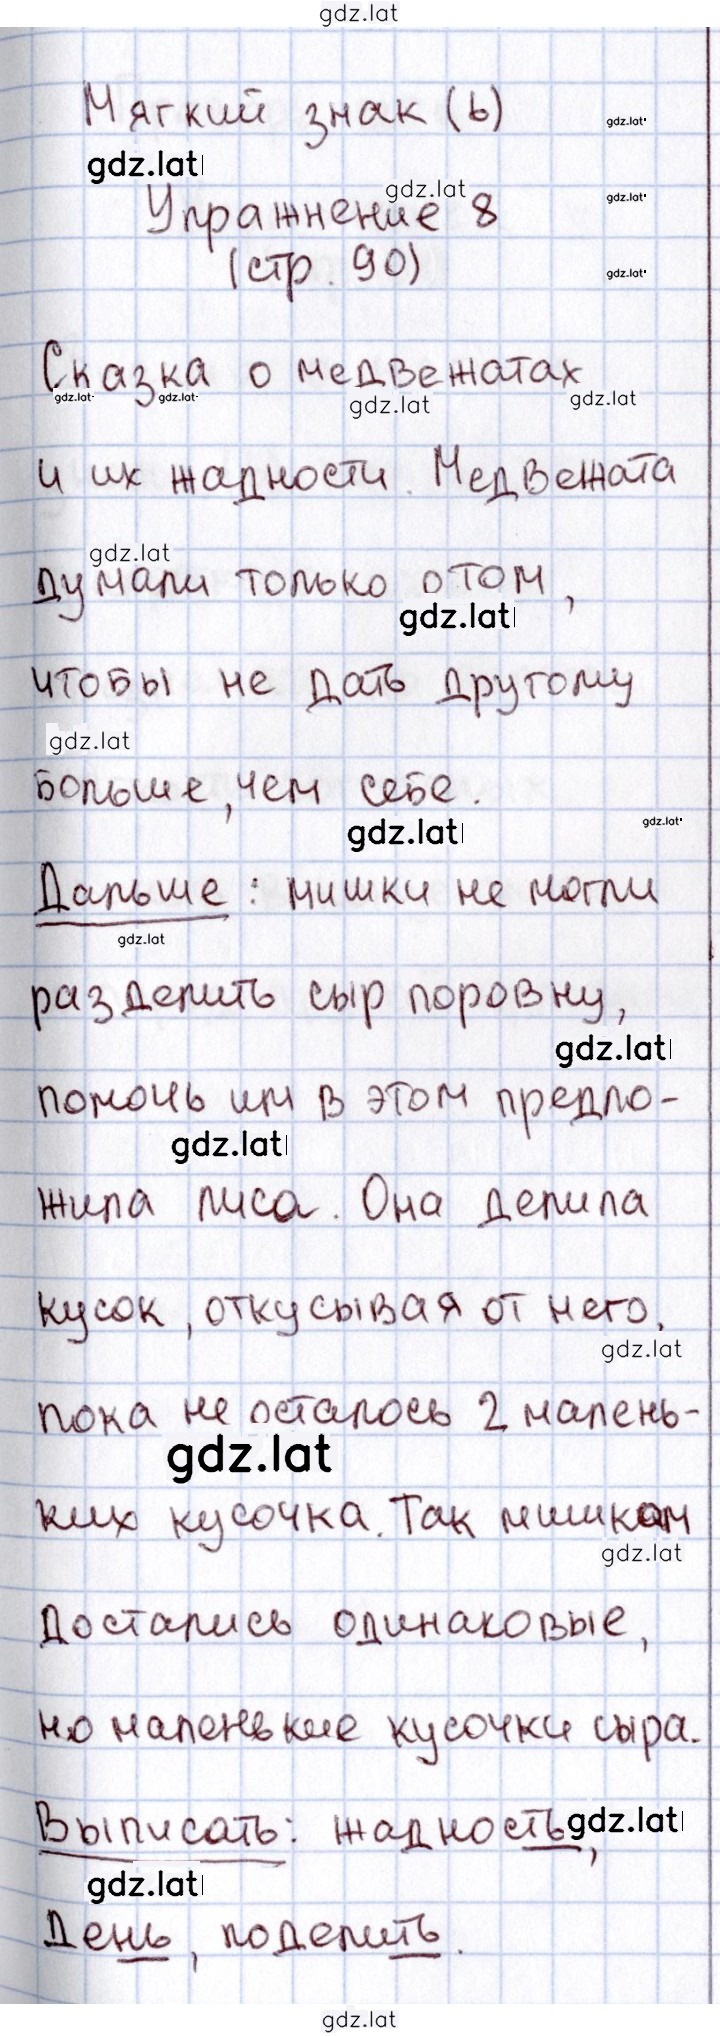 gdz.lat
Мягкий знак (ь)
gdz.lat
gdz.lat
gdz.lat
Упражнение 8
gdz.lat
(стр. 90)
gdz.lat
Сказка о медвежатах
gdz.lat gdz.lat gdz.lat gdz.lat
и их жадности. Медвежата
gdz.lat
думали только о том,
gdz.lat
чтобы не дать другому
gdz.lat
больше, чем себе.
gdz.lat gdz.lat
Дальше: мишки не могли
gdz.lat
разделить сыр поровну,
gdz.lat
помочь им в этом предло-
gdz.lat
жила лиса. Она делила
кусок, откусывая от него,
gdz.lat
пока не осталось 2 малень-
gdz.lat
ких кусочка. Так мишкам
gdz.lat
достались одинаковые,
но маленькие кусочки сыра.
Выписать: жадность,
gdz.lat
gdz.lat
День, поделить.
gdz.lat